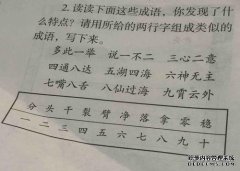 2. 读读下面这些成语，你发现了什
么特点？请用所给的两行字组成类似的
成语，写下来。
多此一举 说一不二 三心二意
四通八达 五湖四海 六神无主
七嘴八舌 八仙过海 九霄云外
分 头 干 裂 臂 净 落 拿 零 稳
一 二 三 四 五 六 七 八 九 十